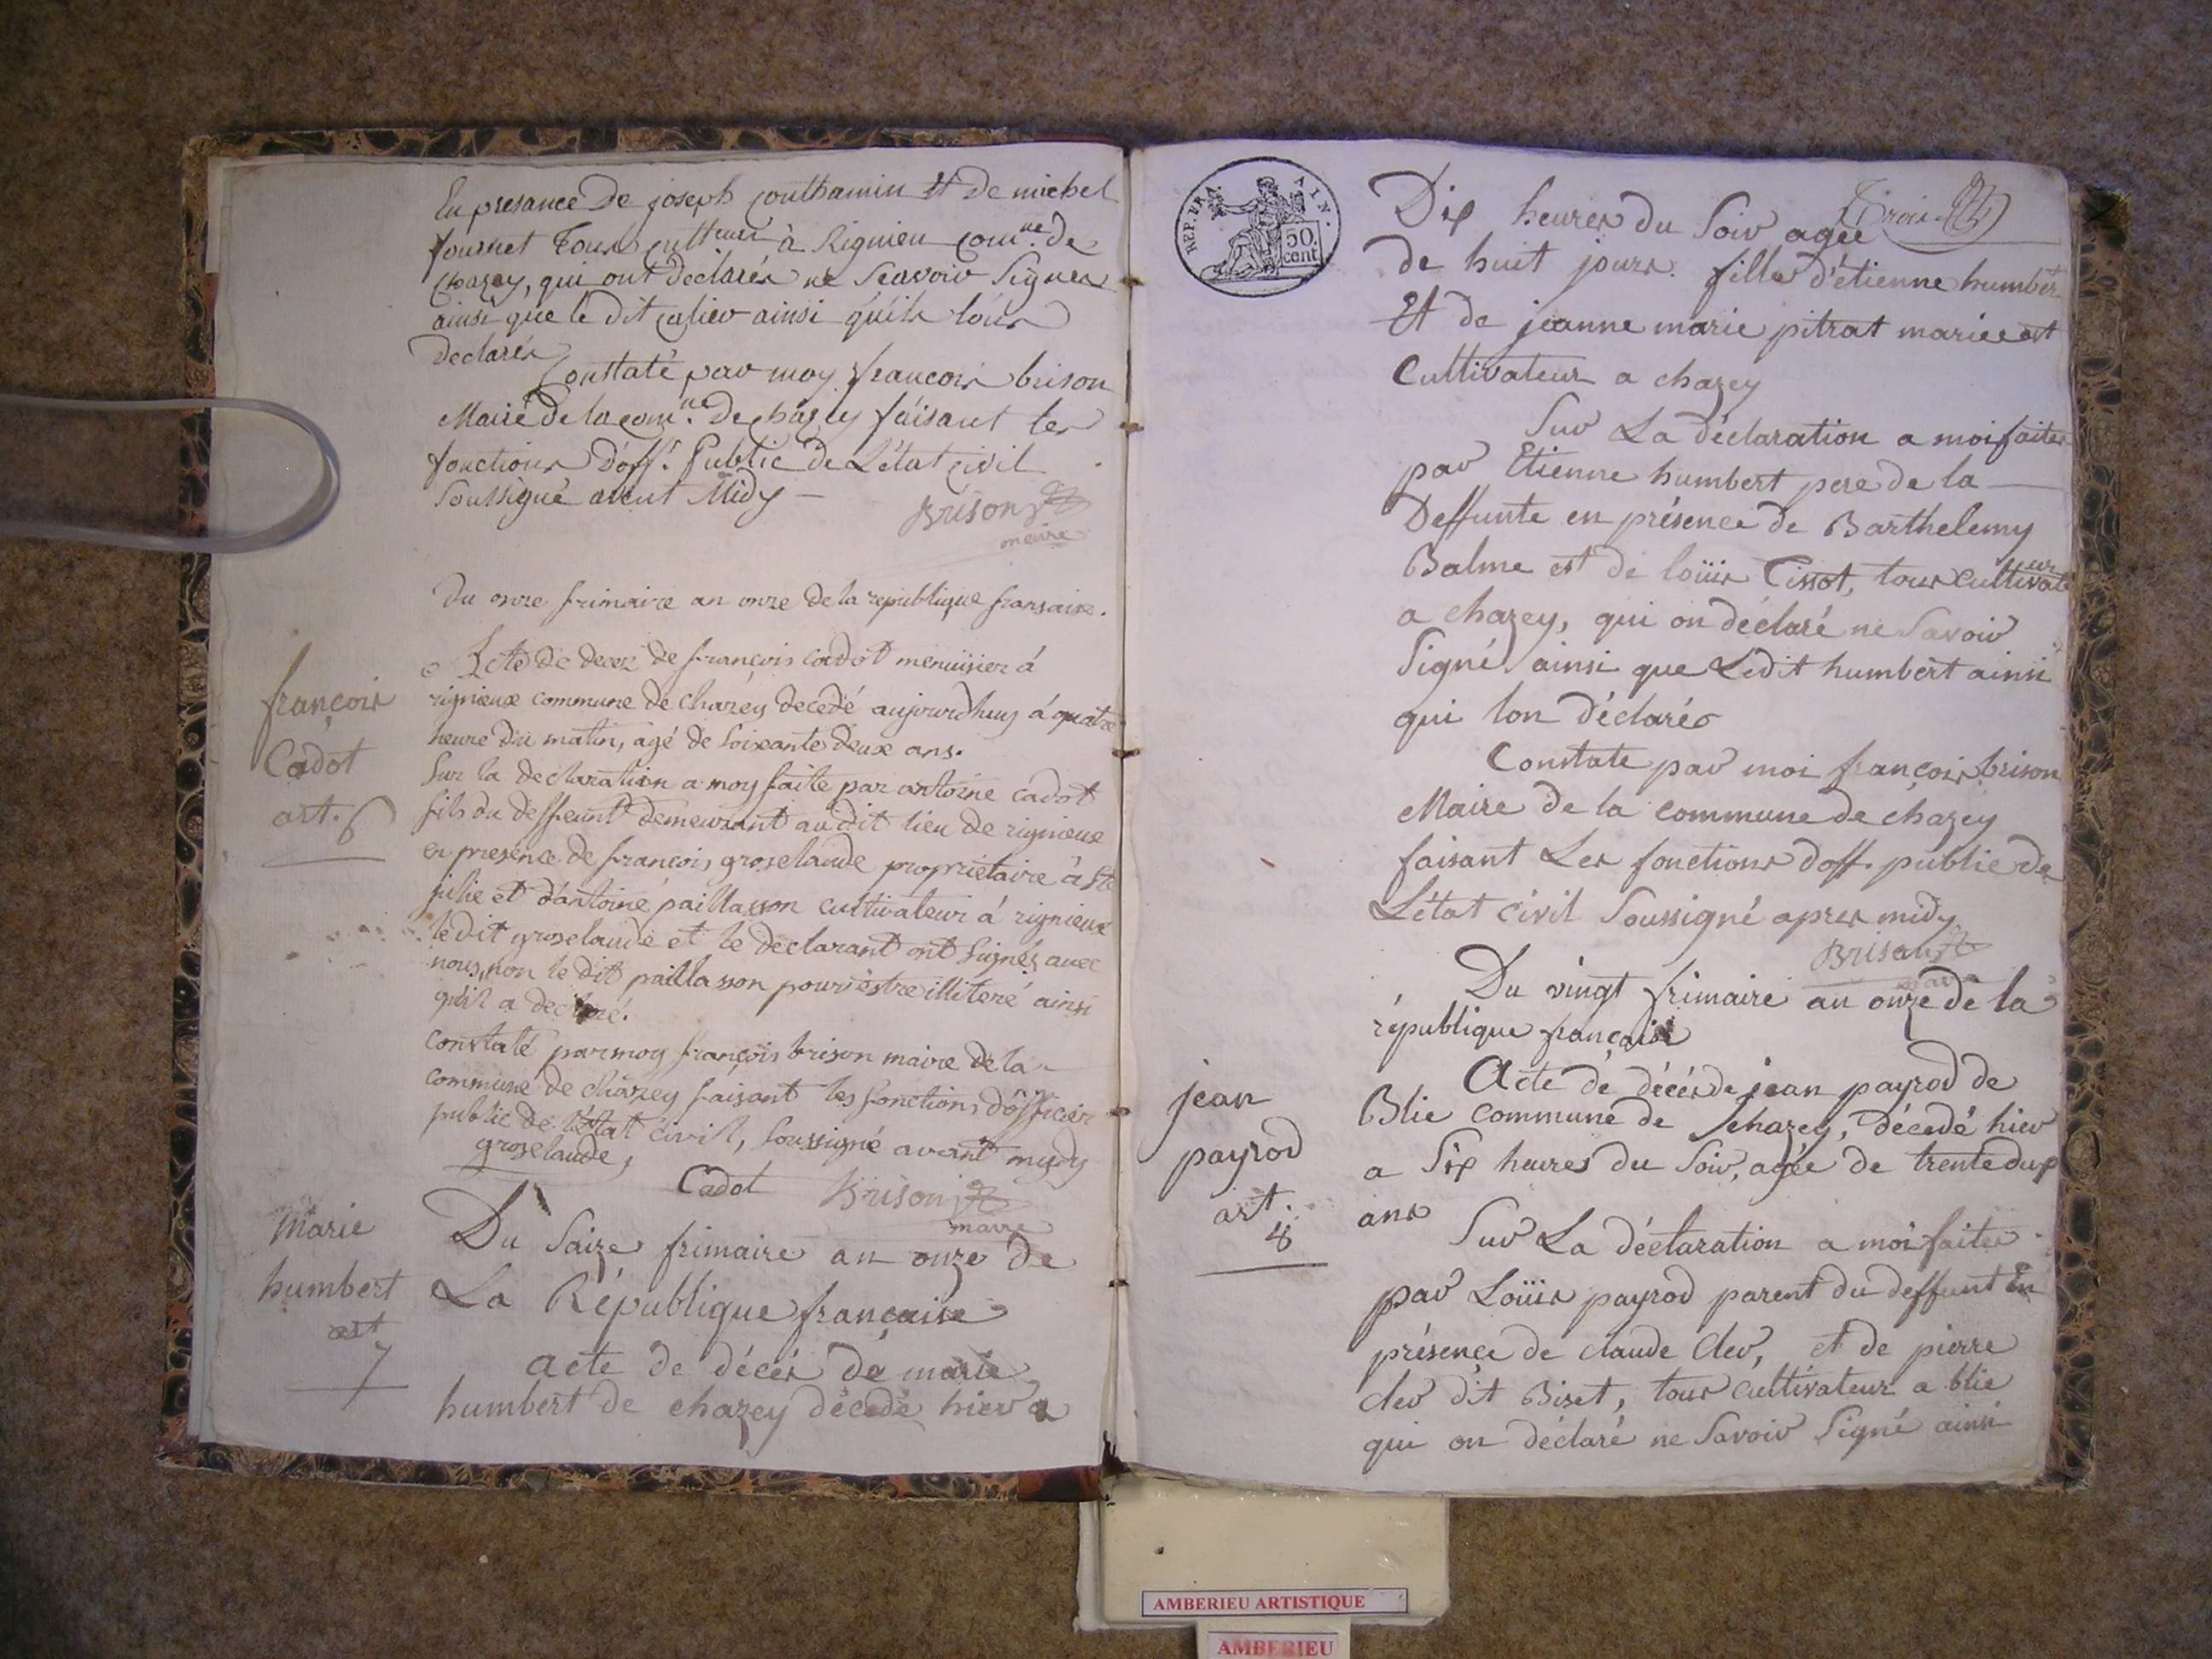 En presance de joseph couthamin Et de michel
fournet Tous cultteurs à Rignieu comne. de
chazey, qui ont déclarés ne Scavoir Signer
ainsi que le dit cusier ainsi quils lous
declarés
Constaté par moy francois brison
Maire de la comne. de chazey faisant les
fonctions d'off. Public de L'état civil
Soussigné avent Midy
Brison
maire
Du onze frimaire an onze de la republique fransaise.
françois
Cadot
art. 6
Acte de decez de françois cadot menuisier á
rignieux commune de chazey decedé aujourdhuy á quatre
heure du matin, agé de soixante deux ans.
Sur la declaration a moy faite par antoine cadot
fils du deffeunt demeurant audit lieu de rignieux
en presénce de françois groselaude propriétaire à Ste
julie et d'antoine paillasson cultivateur á rignieux
le dit groselaude et le declarant ont signés avec
nous, non le dit paillasson pour éstre illiteré ainsi
qu'il a declaré.
constaté par moy françois brison maire de la
commune de chazey faisant les fonctions d'officier
public de l'état civil, soussigné avant mydy
groselaude,
Cadot Brison
maire
marie
humbert
art
7
Du Saize frimaire an onze de
La République française
acte de décés de marie
humbert de chazey décedé hier a
REP. FRA. AIN.
50.
cent.
Trois
Dix heures du Soir agée
de huit jours. fille d'étienne humbert
Et de jeanne marie pitrat mariee est
Cultivateur a chazey
Sur La déclaration a moi faites
par Etienne humbert pere de la
Deffunte en présence de Barthelemy
Balme et de loüis Tissot, tous cultivateur
a chazey, qui on déclaré ne Savoir
Signé ainsi que Ledit humbert ainsi
qui lon déclarés
Constate par moi françois brison
Maire de la commune de chazey
faisant Les fonctions d'off. public de
L'état civil Soussigné apres midy
Brison
Du vingt frimaire an onze de la
république française
jean
payrod
art.
8
Acte de décés de jean payrod de
Blie commune de chazey, décédé hier
a Six heures du Soir, agée de trente dux
ans
Sur La déclaration a moi faites
par Loüis payrod parent du deffunt En
présence de claude cler, et de pierre
cler dit Bizet, tous cultivateur a blie
qui on déclaré ne Savoir Signé ainsi
AMBERIEU ARTISTIQUE
AMBERIEU